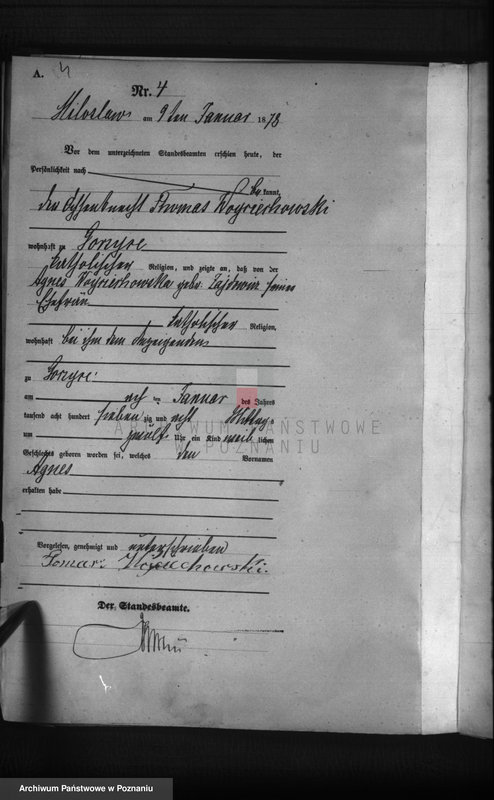 A.
Nr. 4
Miloslaw am 9ten Januar 1878
Vor dem unterzeichneten Standesbeamten erschien heute, der
Persönlichkeit nach
be kannt,
den Ochsenknecht Thomas Woyciechowski
wohnhaft zu Gorzyce
katholischer Religion, und zeigte an, daß von der
Agnes Woyciechowska geb. seiner
Ehefrau
katholischer Religion,
wohnhaft bei ihm dem Anzeigenden
zu Gorzyce
am ach ten Januar des Jahres
tausend acht hundert sieben zig und acht Mittags
um zwölf Uhr ein Kind weib lichen
Geschlechts geboren worden sei, welches den Vornamen
Agnes
erhalten habe
Vorgelesen, genehmigt und unterschrieben
Tomas
Der Standesbeamte.
ARCHIWUM PAŃSTWOWE
W POZNANIU
Archiwum Państwowe w Poznaniu